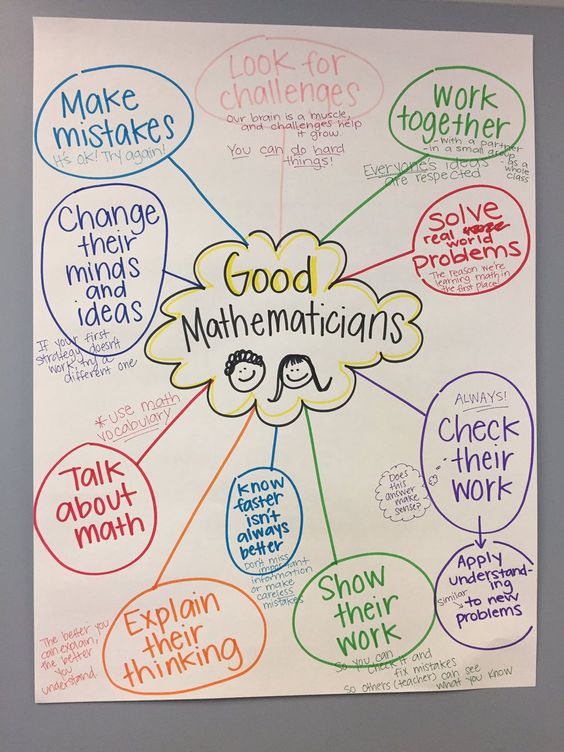 Good
Mathematicians
Look for
challenges
Our brain is a muscle,
and challenges help
it grow.
You can do hard
things!
Work
together
-with a partner
-in a small group
-as a
whole
class
Everyone's ideas
are respected
Solve
real
world
problems
The reason we're
learning math in
the first place!
ALWAYS!
Check
their
work
Does
this
answer
make
sense?
Apply
understand-
ing
similar
to new
problems
Show
their
work
So you can
check it and
fix mistakes
So others (teacher) can see
what you know
Know
faster
isn't
always
better
Don't miss
important
information
or make
careless
mistakes
Explain
their
thinking
The better you
can explain,
the better
you
understand.
Talk
about
math
*use math
vocabulary
Change
their
minds
and
ideas
If your first
strategy doesn't
work, try a
different one
Make
mistakes
It's ok! Try again!